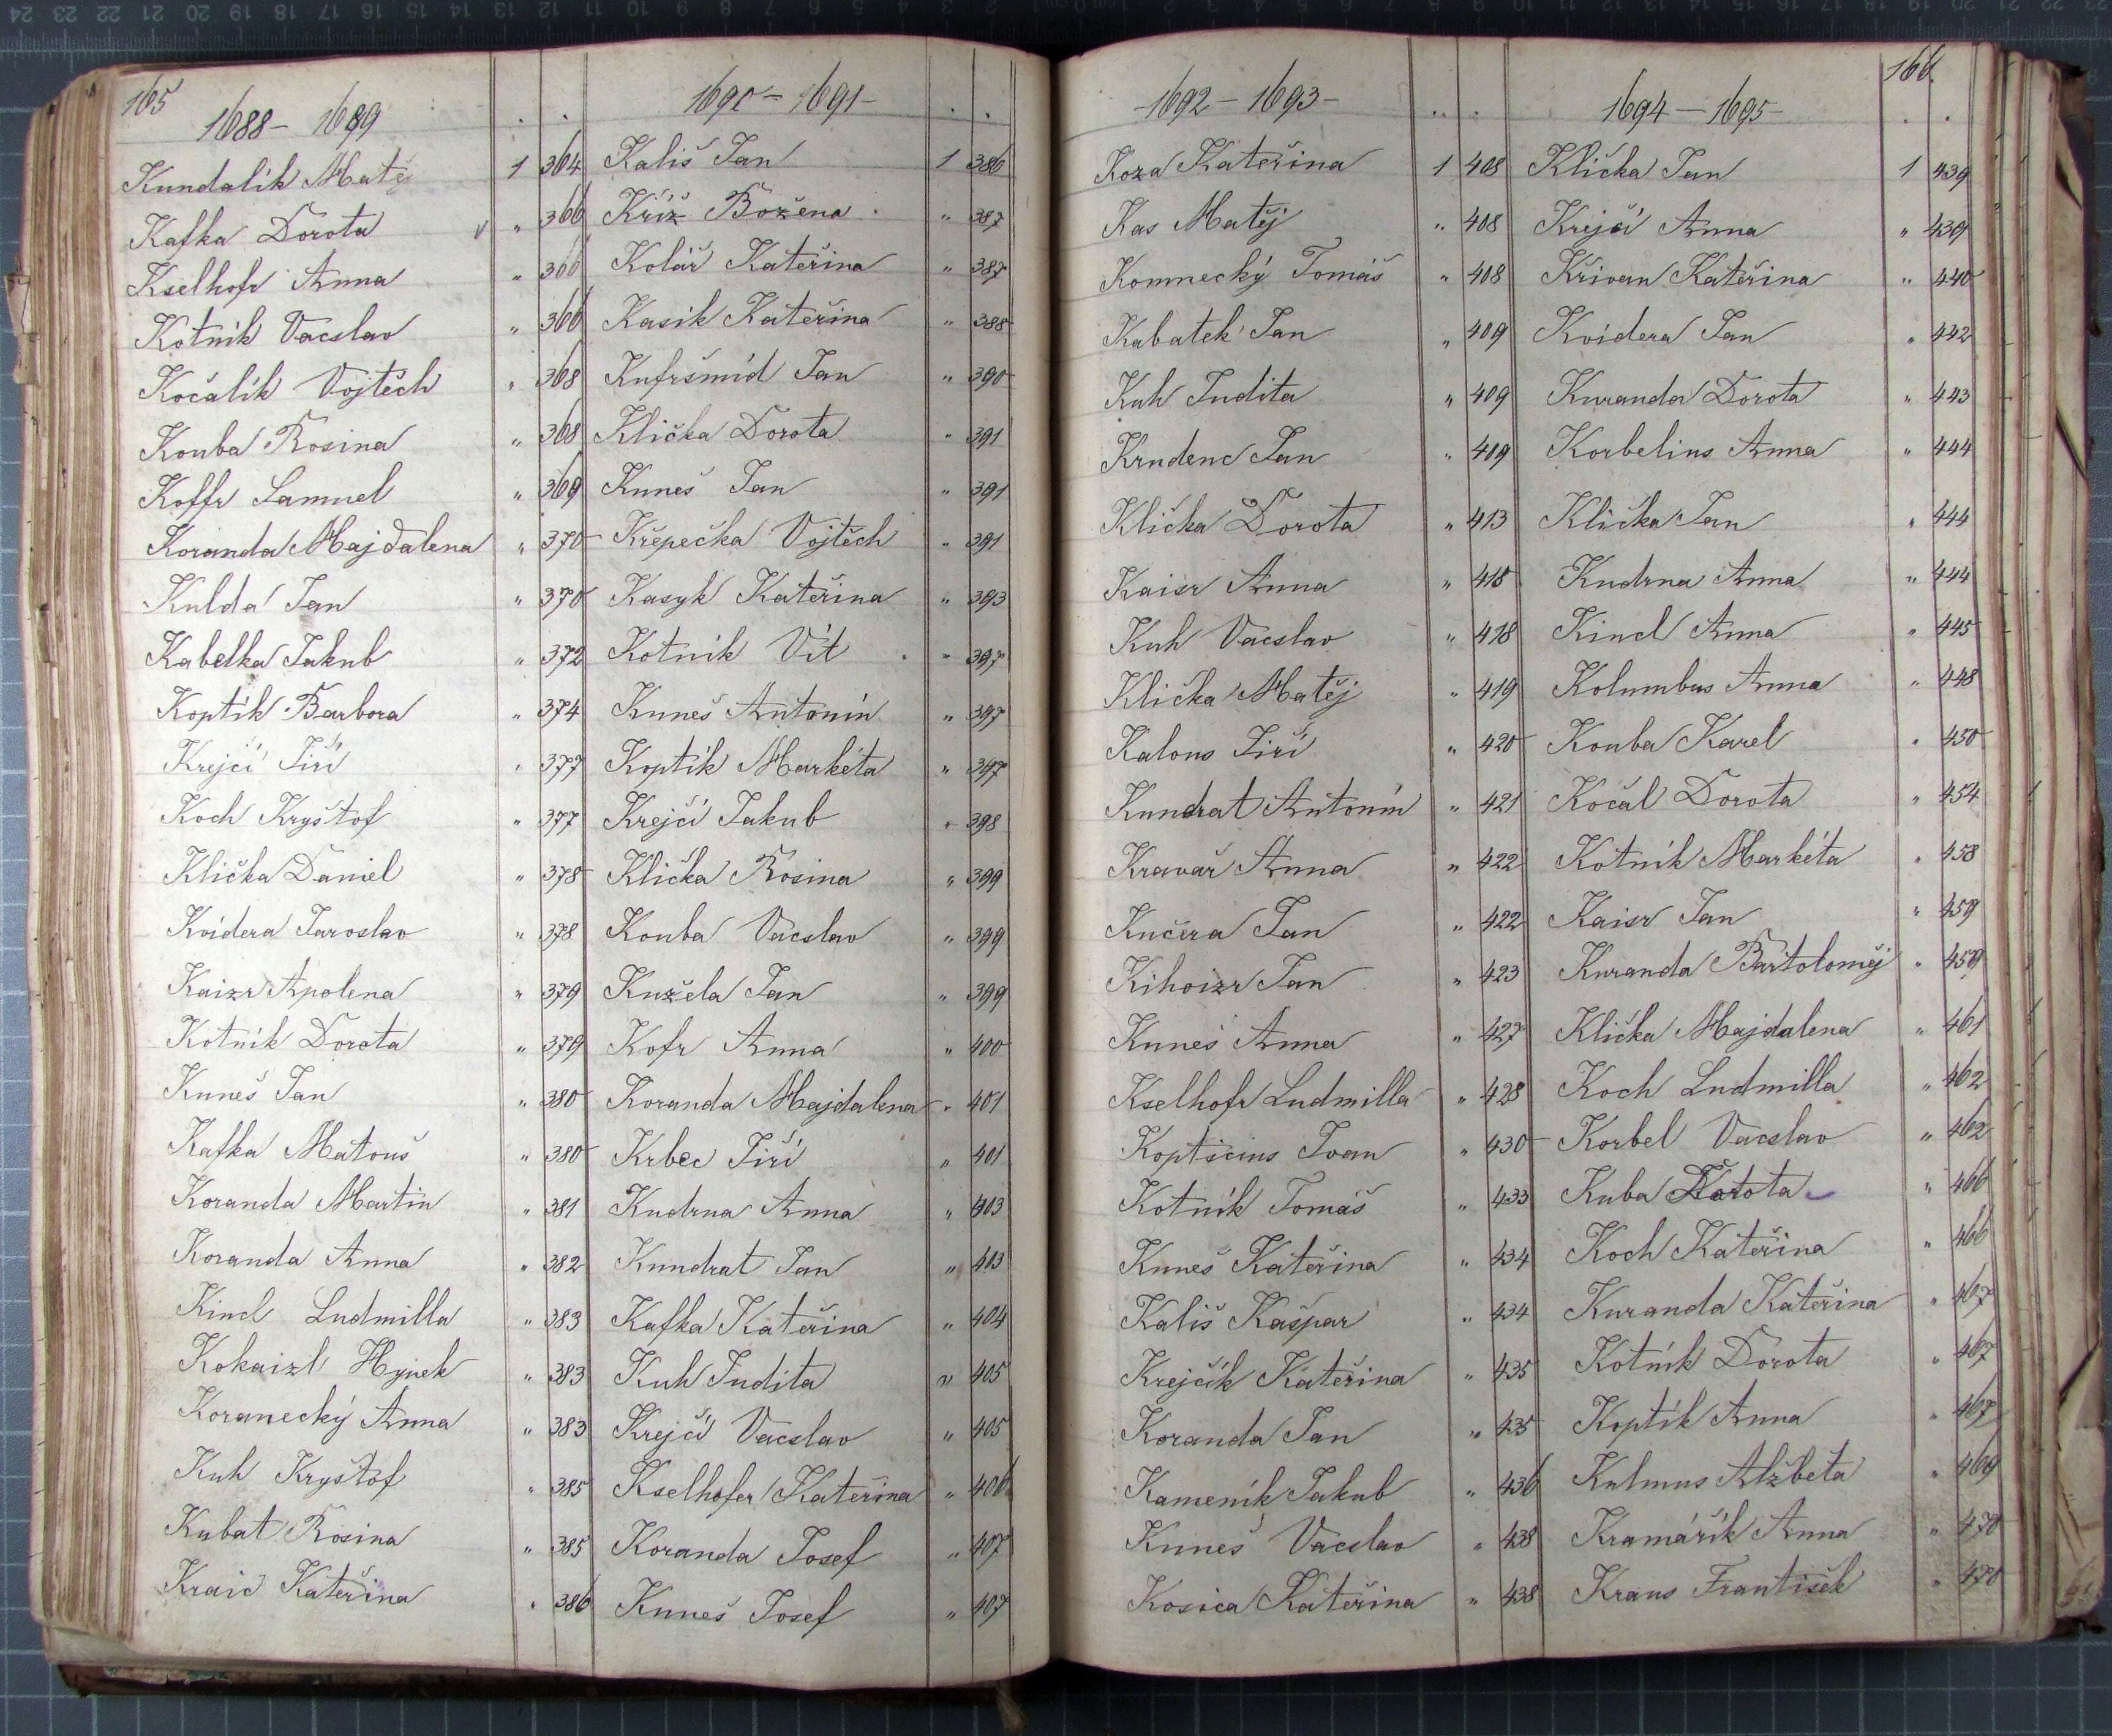 165
1688 - 1689
Kundalík Matěj 1 364
Kafka Dorota √ " 366
Kselhofr Anna " 366
Kotník Vácslav " 366
Kočalík Vojtěch " 368
Kouba Rosina " 368
Koffr Samuel " 369
Koranda Majdalena " 370
Kulda Jan " 370
Kabelka Jakub " 372
Koptík Barbora " 374
Krejčí Jiří " 377
Koch Kryštof " 377
Klička Daniel " 378
Kvidera Jaroslav " 378
Kaizr Apolena " 379
Kotník Dorota " 379
Kuneš Jan " 380
Kafka Matouš " 380
Koranda Martin " 381
Koranda Anna " 382
Kincl Ludmilla " 383
Kokaizl Hynek " 383
Koranecký Anna " 383
Kuh Kryštof " 385
Kubat Rosina " 385
Kraic Kateřina " 386
1690 - 1691 -
Kališ Jan 1 386
Kříž Božena " 387
Kolář Kateřina " 387
Kasik Kateřina " 388
Kufršmíd Jan " 390
Klička Dorota " 391
Kuneš Jan " 391
Křepečka Vojtěch " 391
Kasyk Kateřina " 393
Kotník Vít " 397
Kuneš Antonín " 397
Koptík Markéta " 397
Krejčí Jakub " 398
Klička Rosina " 399
Kouba Vácslav " 399
Kužela Jan " 399
Kofr Anna " 400
Koranda Majdalena " 401
Krbec Jiří " 401
Kudrna Anna " 403
Kundrat Jan " 403
Kafka Kateřina " 404
Kuh Judita " 405
Krejčí Vácslav " 405
Kselhofer Kateřina " 406
Koranda Josef " 407
Kuneš Josef " 407
- 1692 - 1693 -
Koza Kateřina 1 408
Kas Matěj " 408
Komnecký Tomáš " 408
Kabatek Jan " 409
Kuh Judita " 409
Krudenc Jan " 409
Klička Dorota " 413
Kaisr Anna " 418
Kuh Vácslav " 418
Klička Matěj " 419
Kalous Jiří " 420
Kundrat Antonín " 421
Kravař Anna " 422
Kučera Jan " 422
Kihoizr Jan " 423
Kuneš Anna " 427
Kselhofr Ludmilla " 428
Kopticius Ivan " 430
Kotník Tomáš " 433
Kuneš Kateřina " 434
Kališ Kašpar " 434
Krejčík Kateřina " 435
Koranda Jan " 435
Kameník Jakub " 436
Kuneš Vácslav " 438
Kosica Kateřina " 438
166
1694 - 1695 -
Klička Jan 1 439
Krejčí Anna " 439
Křivan Kateřina " 440
Kvidera Jan " 442
Kuranda Dorota " 443
Korbelius Anna " 444
Klička Jan " 444
Kudrna Anna " 444
Kincl Anna " 445
Kolumbus Anna " 448
Kouba Karel " 450
Kočal Dorota " 454
Kotník Markéta " 458
Kaisr Jan " 459
Kuranda Bartoloměj " 459
Klička Majdalena " 461
Koch Ludmilla " 462
Korbel Vácslav " 462
Kuba Dorota " 466
Koch Kateřina " 466
Kuranda Kateřina " 467
Kotník Dorota " 467
Koptík Anna " 467
Kulmus Alžběta " 469
Kramářík Anna " 470
Kraus František " 470